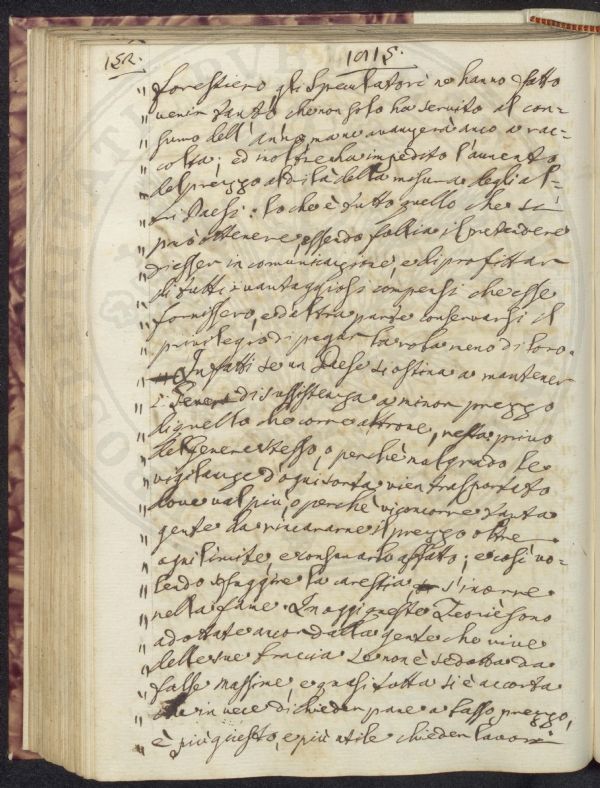 152. 1915.
" forestiero gli Speculatori ne hanno fatto
" venir tanto che non solo ha servito al con-
" sumo dell'anno ma ne avanzerà anco a rac-
" colta; ed inoltre ha impedito l'aumento
" del prezzo al di là della misura degli al-
" tri Paesi: lo che è tutto quello che si
" può ottenere, essendo follia il pretendere
" di esser in comunicazione, e di profittar
" di tutti i vantaggiosi compensi che esse
" fornissero, e d'altra parte conservarsi il
" privilegio di pagar la roba meno di loro.
" Infatti se un Paese si ostina a mantener
" i Generi di sussistenza a minor prezzo
" di quello che corre altrove, resta privo
" del Genere stesso, o perchè malgrado le
" vigilanze d'ogni sorta vien trasportato
" dove val più, o perchè vi concorre tanta
" gente da rincararne il prezzo oltre
" ogni limite, e consumarlo affatto; e così vo-
" lendo sfuggire la carestia s'incorre
" nella fame. In oggi queste Teorie sono
" adottate ancor dalla gente che vive
" delle sue braccia se non è sedotta da
" false massime, e quasi tutta si è accorta
" che in vece di chieder pane a basso prezzo,
" è più giusto, e più utile chieder lavori